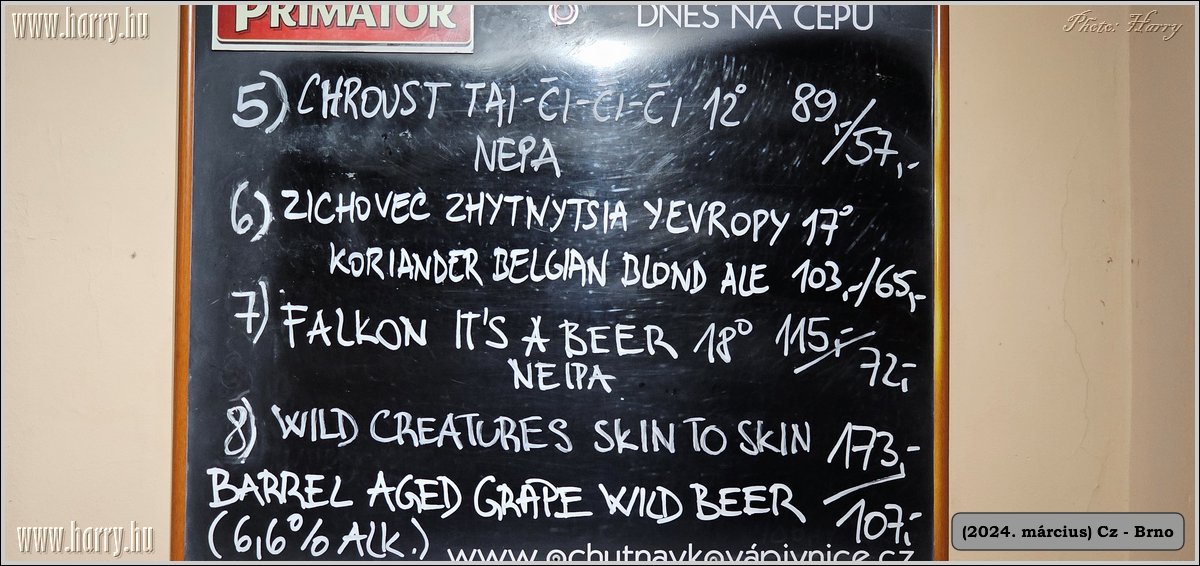 www.harry.hu
PRIMÁTOR
DNES NA ČEPU
Photo: Harry
5) CHROUST TAI-ČI-ČI-ČI 12° 89,-/57,-
NEPA
6) ZICHOVEC ZHYTNYTSIA YEVROPY 17°
KORIANDER BELGIAN BLOND ALE 103,-/65,-
7) FALKON IT'S A BEER 18° 115,-/72,-
NEIPA
8) WILD CREATURES SKIN TO SKIN 173,-/107,-
BARREL AGED GRAPE WILD BEER
(6,6% ALK.)
www.ochutnavkovapivnice.cz
www.harry.hu
(2024. március) Cz - Brno